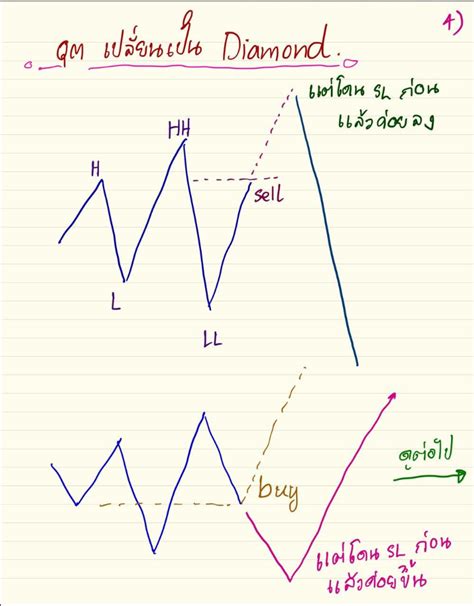 4)
QM เปลี่ยนเป็น Diamond.
แต่โดน SL ก่อน
แล้วค่อยลง
HH
H
sell
L
LL
ดูต่อไป
buy
แต่โดน SL ก่อน
แล้วค่อยขึ้น